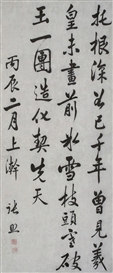 托根深谷已千年曾見羲
皇未畫前水雪枝頭寒破
玉一團造化契先天
丙辰二月上澣 張照